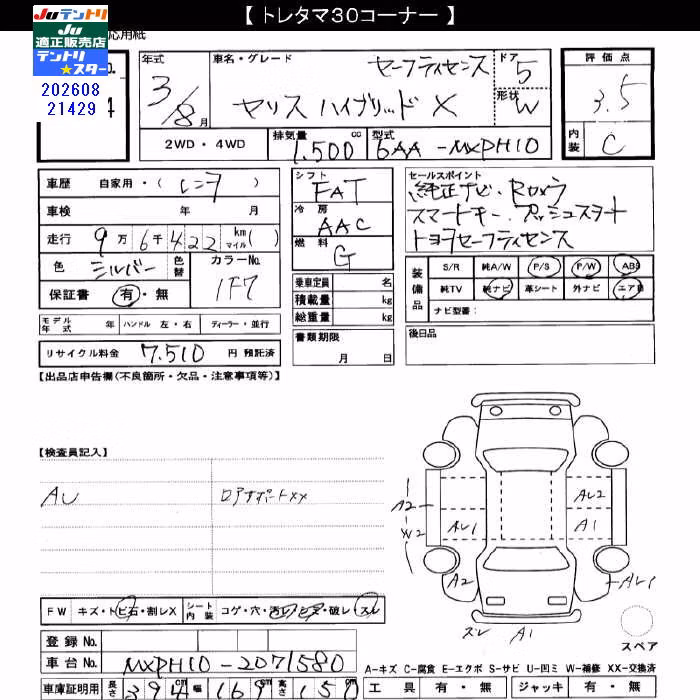 【 トレタマ30コーナー 】
Juテントリ
Ju
適正販売店
テントリ
★スター
応用紙
No.
202608
21429
年式 3/8月
車名・グレード セーフティセンス
ヤリス ハイブリッド X
ドア 5
形状 W
評価点 3.5
内装 C
2WD・4WD
排気量 1,500 cc
型式 6AA-MXPH10
車歴 自家用・( レンタ )
車検 年 月
走行 9万6千422 km マイル( )
色 シルバー 色替 カラーNo. 1F7
保証書 有・無
シフト FAT
冷房 AAC
燃料 G
乗車定員 名
積載量 kg
総重量 kg
書類期限
月 日
セールスポイント
純正ナビ・Rカメラ
スマートキー・プッシュスタート
トヨタセーフティセンス
装備品 S/R 純A/W P/S P/W ABS
純TV 純ナビ 革シート 外ナビ エアB
ナビ型番:
後日品
モデル年式 年 ハンドル 左・右 ディーラー・並行
リサイクル料金 7,510 円 預託済
【出品店申告欄(不良箇所・欠品・注意事項等)】
【検査員記入】
AU ロアサポートXX
A2
W2
AU1
AU2
A1
A2
AU1
スレ A1
スペア
FW キズ・トビ石・割レX シート内装 コゲ・穴・汚レ・シミ・破レ・スレ
登録No.
車台No. MXPH10-2071580
車庫証明用 長さ 394cm 幅 169cm 高さ 150cm
A-キズ C-腐食 E-エクボ S-サビ U-凹ミ W-補修 XX-交換済
工具 有・無 ジャッキ 有・無